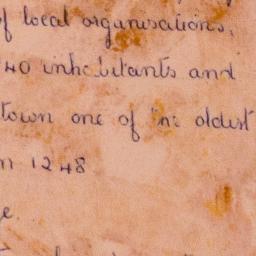 of local organisations,
40 inhabitants and
town one of the oldest
n 1248
e.